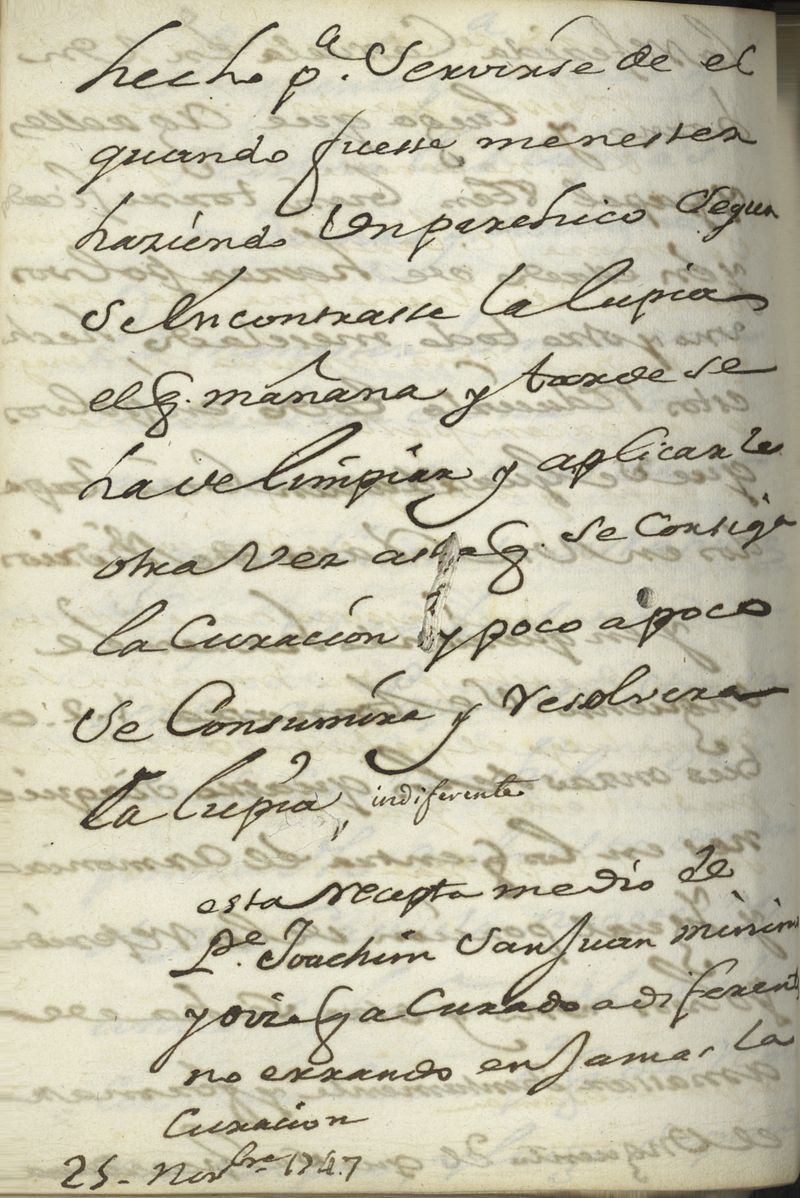 hecho pª. Servirse de el
quando fuesse menester
haziendo Un parchico Segun
se Encontrasse la lupia
el q. mañana y tarde se
ha de limpiar y aplicarle
otra Vez asta q. se Consiga
la Curación y poco a poco
se Consumíra y resolvera
la lupia, indiferente
esta recepta me dio de
Pe. Joachin San Juan minim
y q a Curado a diferent
no errando en Jamas la
Curacion
25 - Novbre 1747